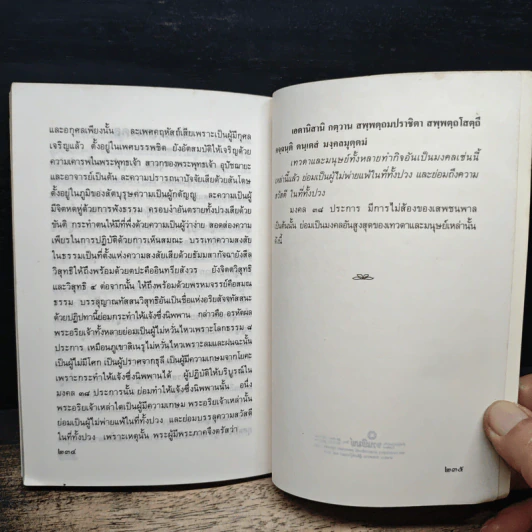 และอกุศลเพียงนั้น ละเพศคฤหัสถ์เสียเพราะเป็นผู้มีกุศล
เจริญแล้ว ตั้งอยู่ในเพศบรรพชิต ยังอัตสมบัติให้เจริญด้วย
ความเคารพในพระพุทธเจ้า สาวกของพระพุทธเจ้า อุปัชฌายะ
และอาจารย์เป็นต้น ละความปรารถนาปัจจัยเสียด้วยสันโดษ
ตั้งอยู่ในภูมิของสัตบุรุษความเป็นผู้กตัญญู ละความเป็นผู้
มีจิตหดหู่ด้วยการฟังธรรม ครอบงำอันตรายทั้งปวงเสียด้วย
ขันติ กระทำตนให้มีที่พึ่งด้วยความเป็นผู้ว่าง่าย สอดส่องความ
เพียรในการปฏิบัติด้วยการเห็นสมณะ บรรเทาความสงสัย
ในธรรมเป็นที่ตั้งแห่งความสงสัยเสียด้วยธัมมสากัจฉา ยังสีล
วิสุทธิให้ถึงพร้อมด้วยตบะคืออินทรียสังวร ยังจิตตวิสุทธิ
และวิสุทธิ ๔ ต่อจากนั้น ให้ถึงพร้อมด้วยพรหมจรรย์คือสมณ
ธรรม บรรลุญาณทัสสนวิสุทธิอันเป็นชื่อแห่งอริยสัจจทัสสนะ
ด้วยปฏิปทานี้ย่อมกระทำให้แจ้งซึ่งนิพพาน กล่าวคือ อรหัตผล
พระอริยเจ้าทั้งหลายย่อมเป็นผู้ไม่หวั่นไหวเพราะโลกธรรม ๘
ประการ เหมือนภูเขาสิเนรุไม่หวั่นไหวเพราะลมและฝนฉะนั้น
เป็นผู้ไม่มีโศก เป็นผู้ปราศจากธุลี เป็นผู้มีความเกษมจากโยคะ
เพราะกระทำให้แจ้งซึ่งนิพพานได้ ผู้ปฏิบัติให้บริบูรณ์ใน
มงคล ๓๘ ประการนั้น ย่อมทำให้แจ้งซึ่งนิพพานนั้น อนึ่ง
พระอริยเจ้าเหล่าใดเป็นผู้มีความเกษม พระอริยเจ้าเหล่านั้น
ย่อมเป็นผู้ไม่พ่ายแพ้ในที่ทั้งปวง และย่อมบรรลุความสวัสดี
ในที่ทั้งปวง เพราะเหตุนั้น พระผู้มีพระภาคจึงตรัสว่า
๒๓๔
เอตาทิสานิ กตฺวาน สพฺพตฺถมปราชิตา สพฺพตฺถ โสตฺถึ
คจฺฉนฺติ ตนฺเตสํ มงฺคลมุตฺตมํ
เทวดาและมนุษย์ทั้งหลายทำกิจอันเป็นมงคลเช่นนี้
เหล่านี้แล้ว ย่อมเป็นผู้ไม่พ่ายแพ้ในที่ทั้งปวง และย่อมถึงความ
สวัสดี ในที่ทั้งปวง
มงคล ๓๘ ประการ มีการไม่ส้องของเสพชนพาล
เป็นต้นนั้น ย่อมเป็นมงคลอันสูงสุดของเทวดาและมนุษย์เหล่านั้น
ดังนี้
๒๓๕